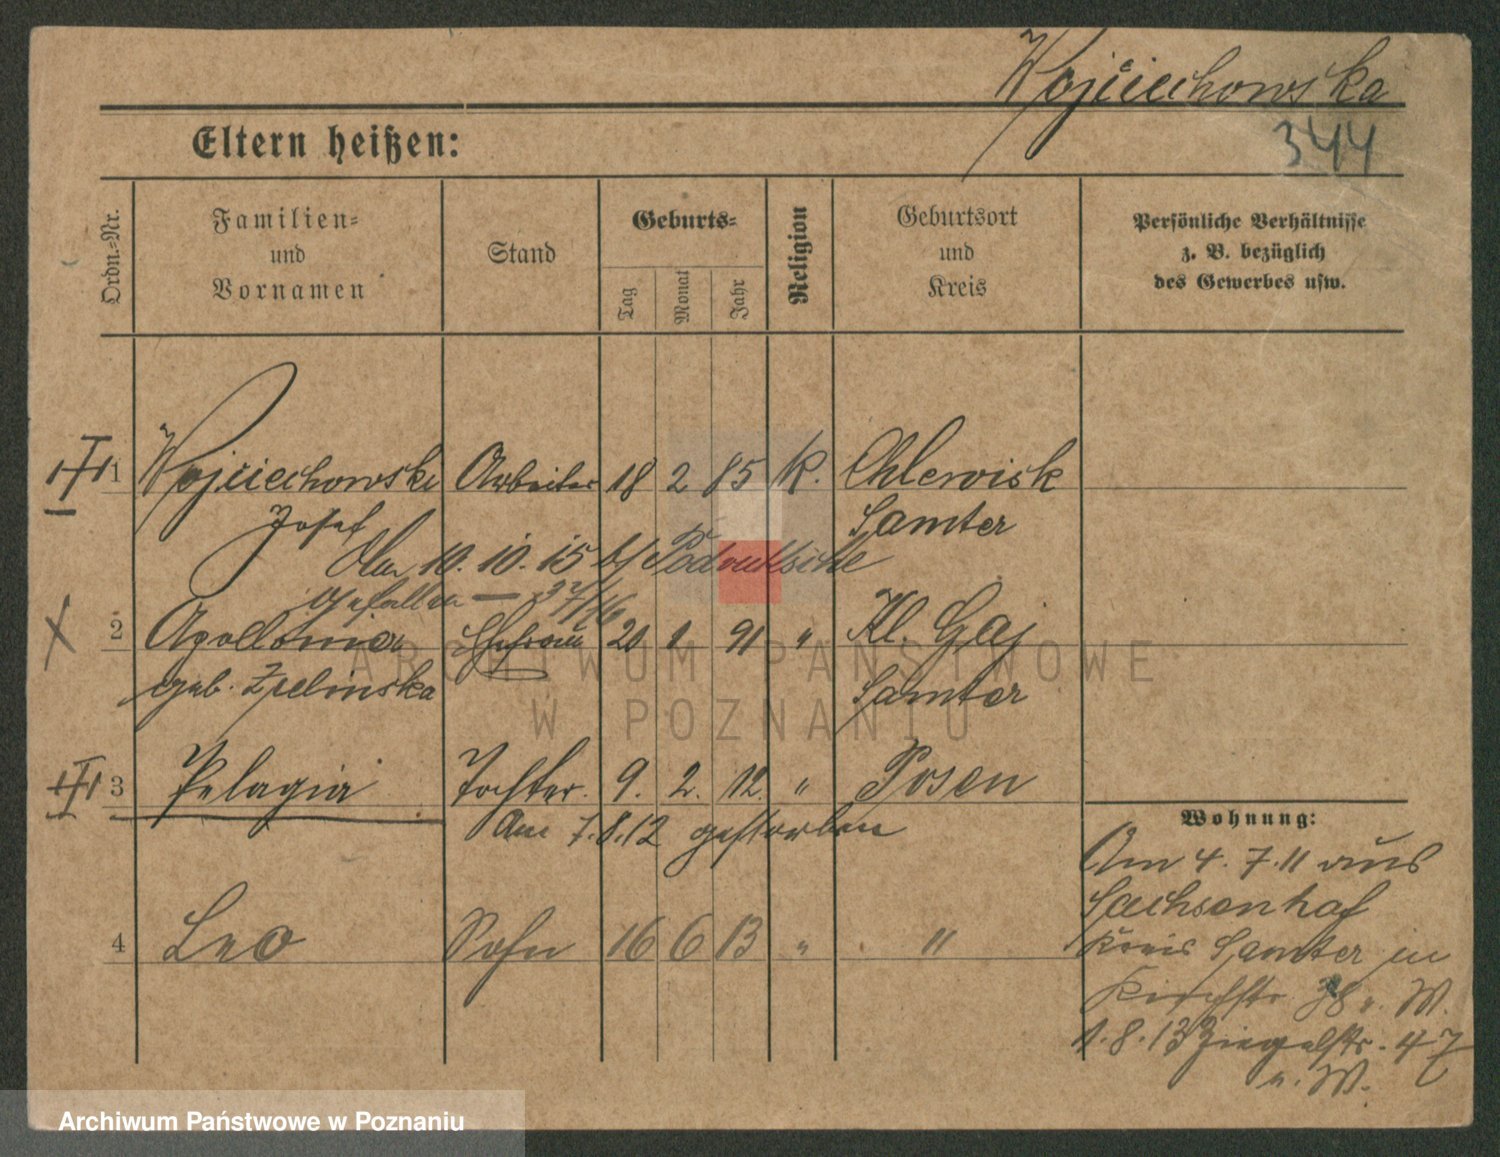 Wojciechowska
344
Eltern heißen:
Ordn.-Nr.
Familien-
und
Vornamen
Stand
Geburts-
Tag
Monat
Jahr
Religion
Geburtsort
und
Kreis
Persönliche Verhältnisse
z. B. bezüglich
des Gewerbes usw.
1 Wojciechowski Arbeiter 18 2 85 K. Chlewisk
Josef Samter
Am 10. 10. 15 b/
gefallen — 37/16
2 Apollonia Ehefrau 20 1 91 " Kl. Gaj
geb. Zielinska Samter
3 Pelagia Tochter. 9. 2. 12. " Posen
Am 7.8.12 gestorben
4 Leo Sohn 16 6 13 " "
Wohnung:
Am 4. 7. 11 aus
Sachsenhof
Kreis Samter in
Kirchstr. 38 b. W.
1. 8. 13 Ziegelstr. 47
b. W.
ARCHIWUM PAŃSTWOWE
W POZNANIU
Archiwum Państwowe w Poznaniu